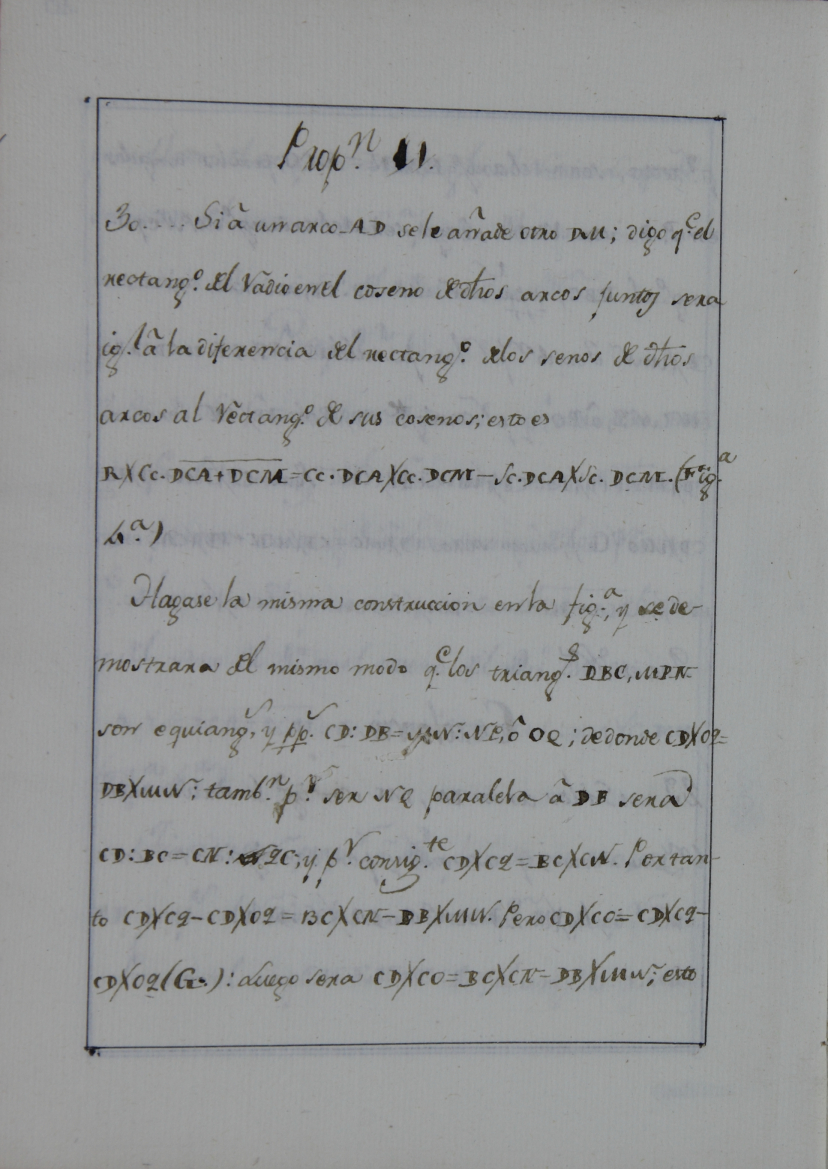 Prop.ⁿ 11.
30.... Si â un arco AD se le añade otro DM; digo q.e el
rectang.o del Vadio en el coseno de dhos arcos juntos sera
ig.l â la diferencia del rectang.o de los senos de dhos
arcos al Rectang.o de sus cosenos; esto es
RXCc. DCA+DCM=Cc. DCAXCc. DCM-Sc. DCAXSc. DCM. (Fig.a
4.a)
Hagase la misma construccion en la fig.a, y se de-
mostrara del mismo modo q.e los triang.s DBC, MPN
son equiang.s, y p.r CD: DB=MN: NP, ô OQ; de donde CDXOQ=
DBXMN; tamb.n p.r ser NQ paralela â DB sera
CD: BC=CN: QC, y p.r consig.te CDXCQ=BCXCN. Por tan-
to CDXCQ-CDXOQ=BCXCN-DBXMN. Pero CDXCO=CDXCQ-
CDXOQ (G.): Luego sera CDXCO=BCXCN-DBXMN; esto